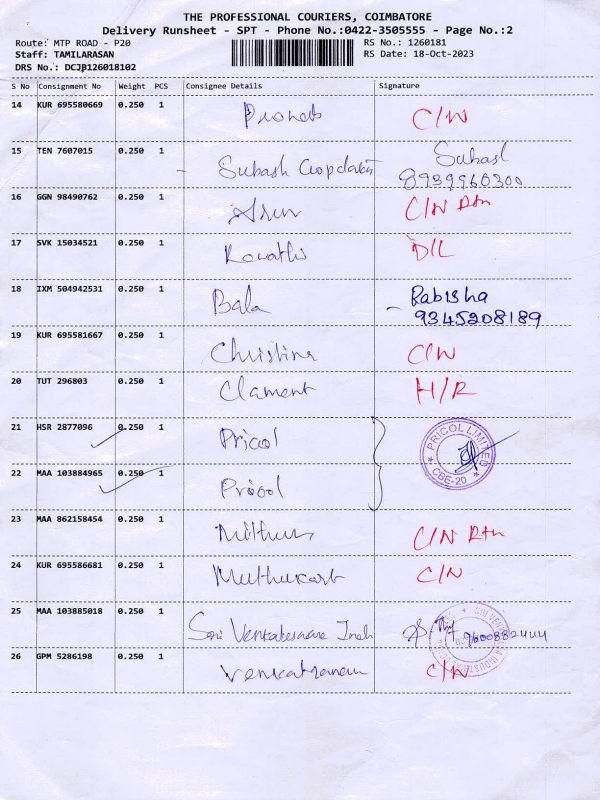 THE PROFESSIONAL COURIERS, COIMBATORE
Delivery Runsheet - SPT - Phone No.:0422-3505555 - Page No.:2
Route: MTP ROAD - P20 RS No.: 1260181
Staff: TAMILARASAN RS Date: 18-Oct-2023
DRS No.: DCJB126018102
S No Consignment No Weight PCS Consignee Details Signature
14 KUR 695580669 0.250 1 C/N
15 TEN 7607015 0.250 1 Subash Subash
8939960300
16 GGN 98490762 0.250 1 Arun C/N Rtn
17 SVK 15034521 0.250 1 D/L
18 IXM 504942531 0.250 1 Bala Rabisha
9345208189
19 KUR 695581667 0.250 1 Christina C/N
20 TUT 296803 0.250 1 Clament H/R
21 HSR 2877096 0.250 1 Pricol PRICOL LIMITED
CBE-20
22 MAA 103884965 0.250 1 Pricol
23 MAA 862158454 0.250 1 Mithun C/N Rtn
24 KUR 695586681 0.250 1 C/N
25 MAA 103885018 0.250 1 Sri 9600882444
26 GPM 5286198 0.250 1 Venkatraman C/N